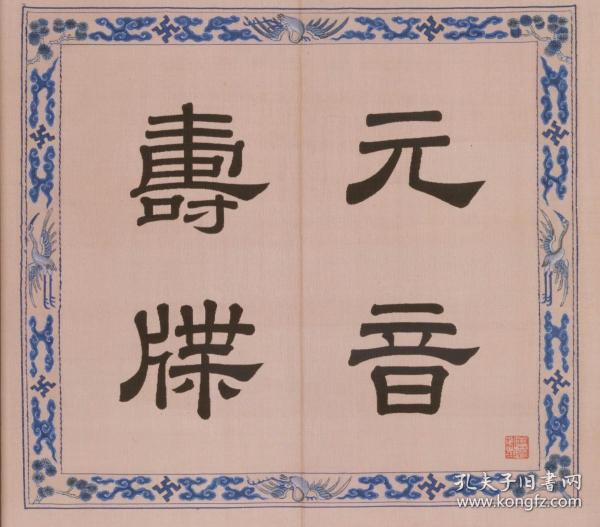 元音
壽牒
孔夫子旧书网
www.kongfz.com